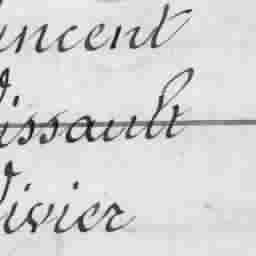 Vincent
Vissault
Vivier